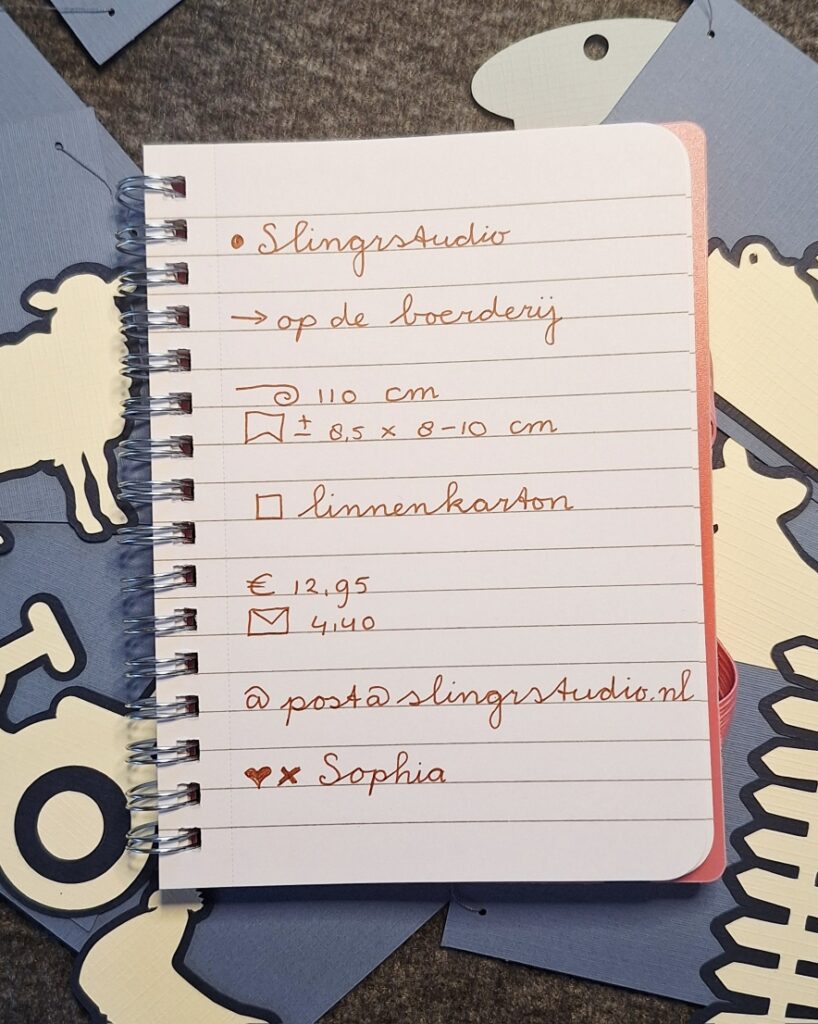 • Slingrstudio
→ op de boerderij
110 cm
± 8,5 x 8-10 cm
□ linnenkarton
€ 12,95
4,40
@ post@slingrstudio.nl
♥ x Sophia